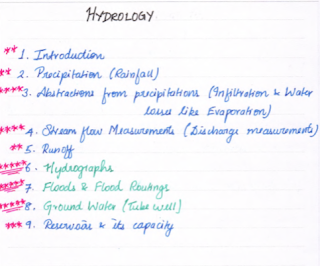 HYDROLOGY
** 1. Introduction
** 2. Precipitation (Rainfall)
**** 3. Abstractions from precipitations (Infiltration & Water
losses like Evaporation)
**** 4. Stream flow Measurements (Discharge measurements)
** 5. Runoff
***** 6. Hydrographs
***** 7. Floods & Flood Routings
**** 8. Ground Water (Tube well)
*** 9. Reservoirs & its capacity